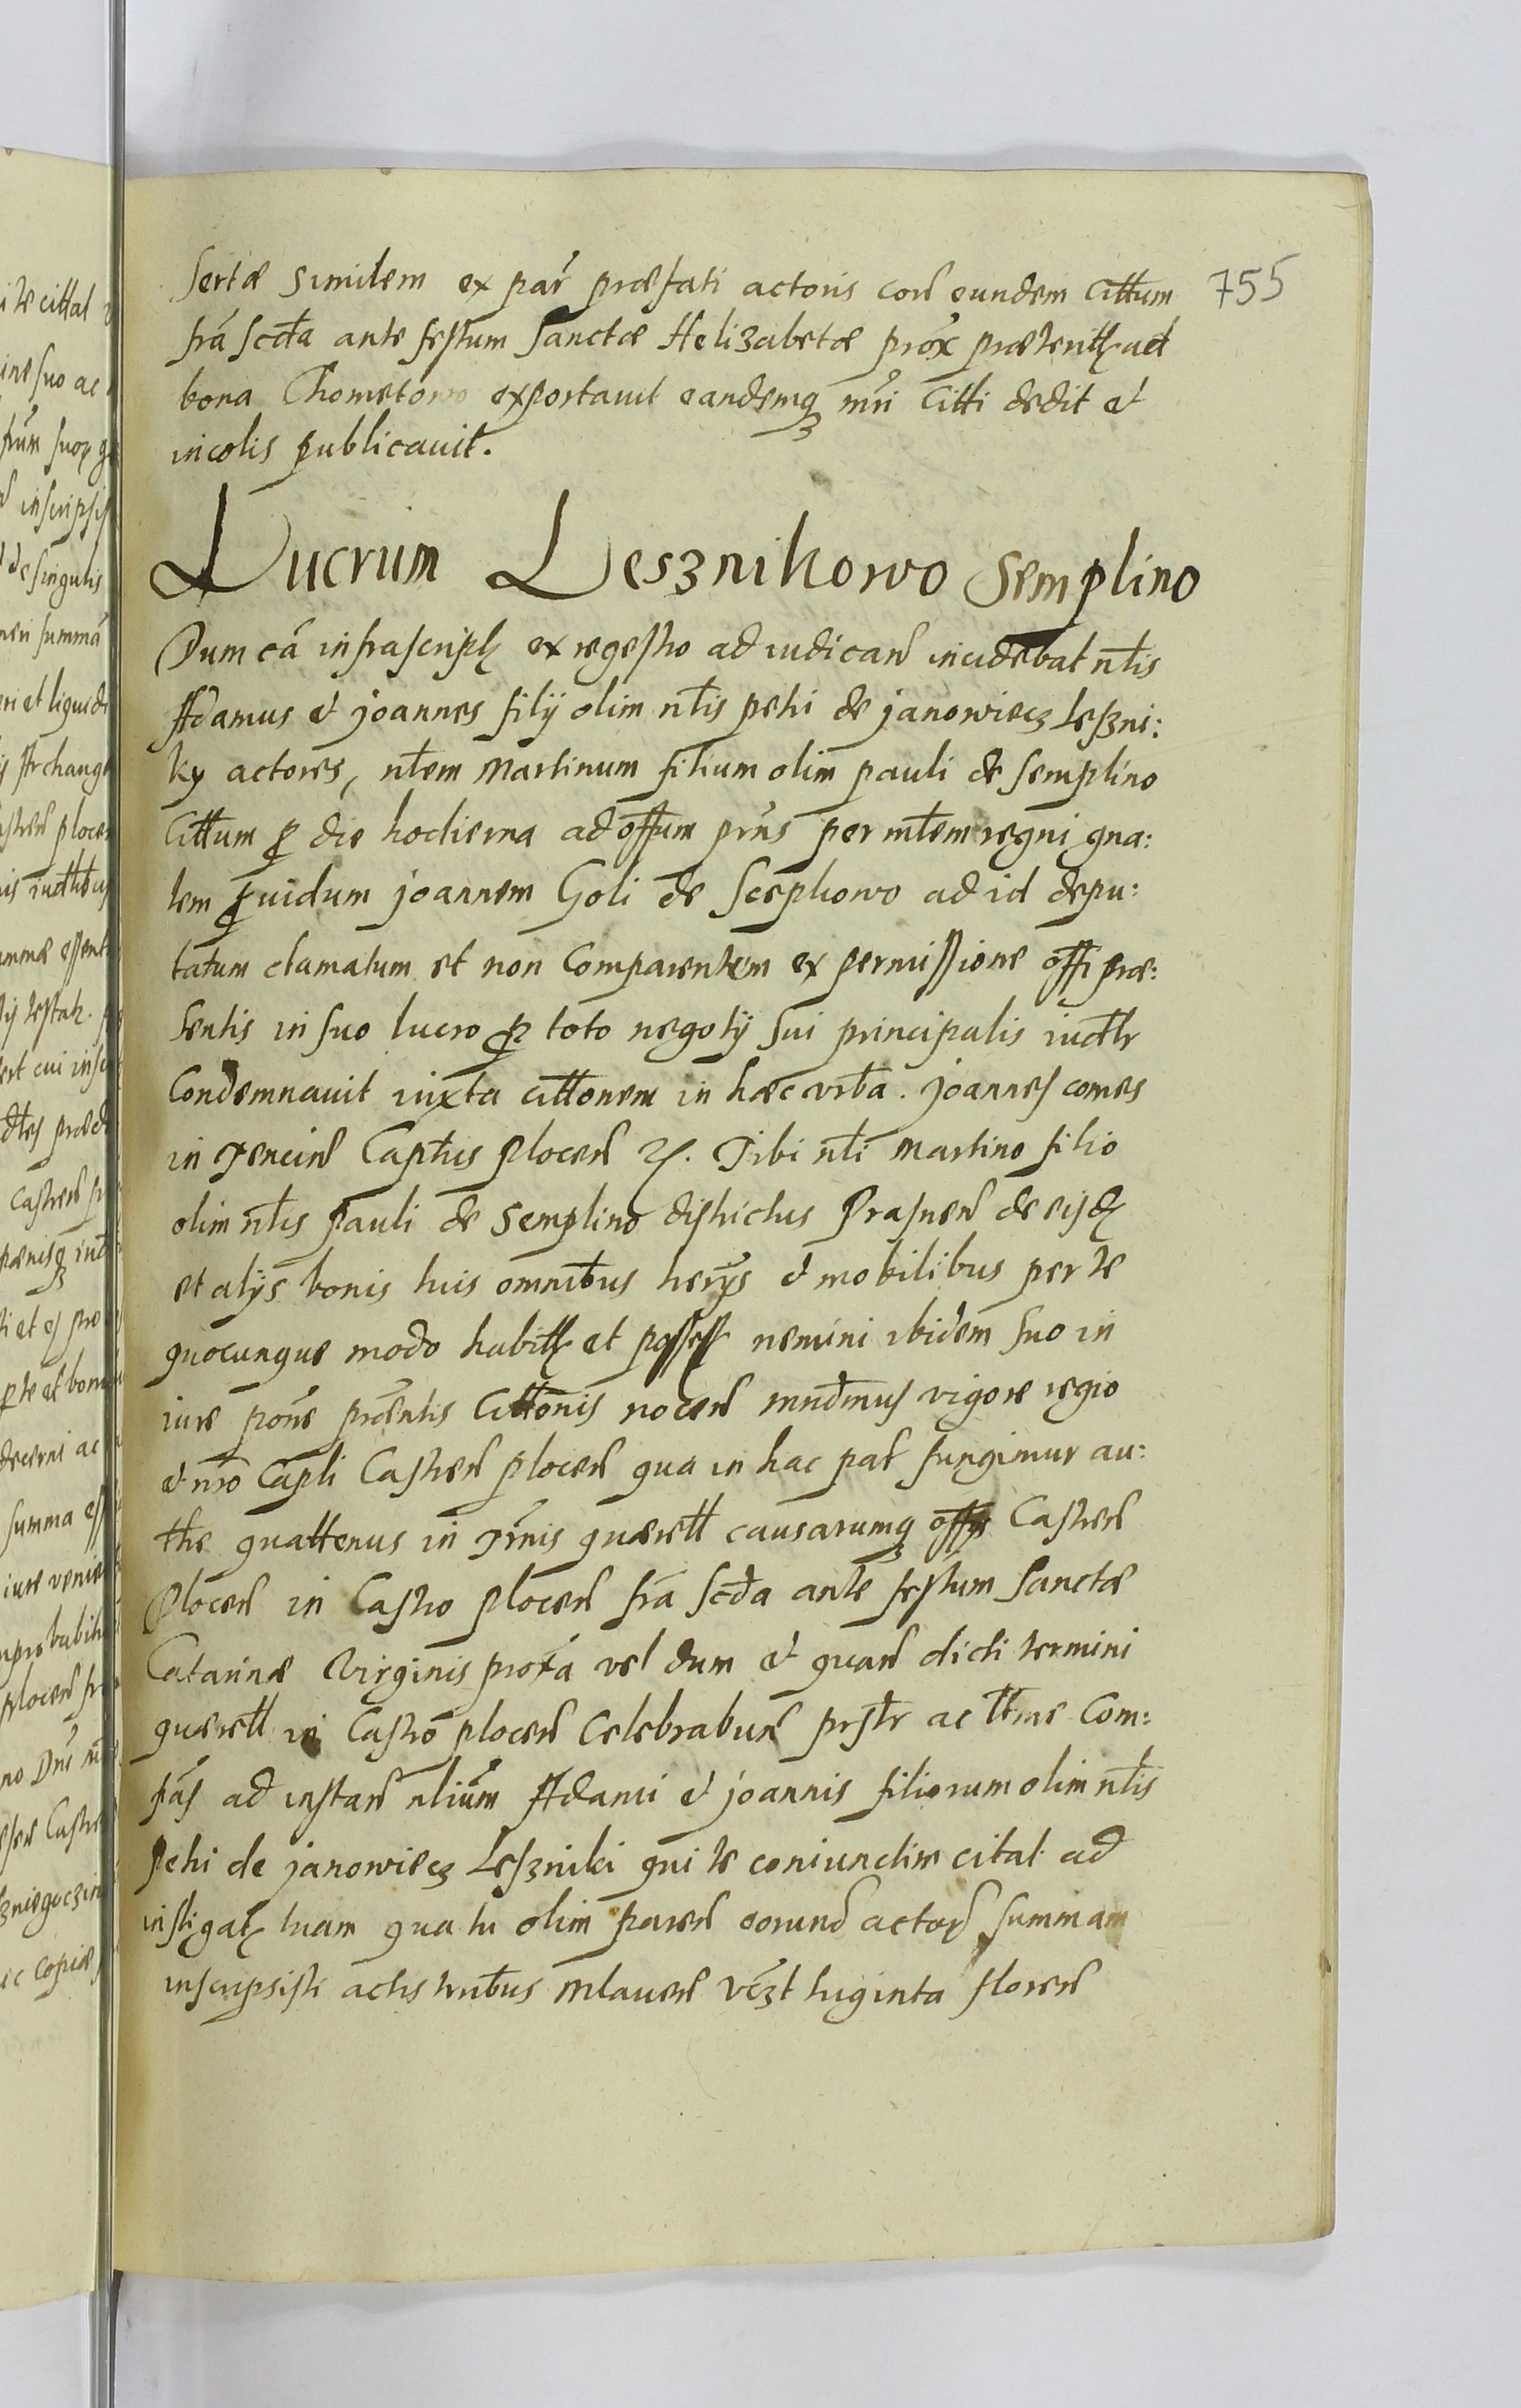 sertæ similem ex par præfati actoris con eundem Cittum 755
fra scda ante festum Sanctæ Helizabetæ prox præterith ad
bona Chometowo exportavit eandemq mri Citti dedit et
incolis publicavit.
Lucrum Lesznikowo Semplino
Dum ca infrascript ex regestro ad iudican incidebat nlis
Adamus et Joannes filij olim nlis petri de janowiecz Leszni:
ky actores, nlem Martinum filium olim pauli de Semplino
Cittum p die hodierna ad offum prns per mlem regni gna:
lem pvidum joannem Goli de Scephowo ad id depu:
tatum clamatum et non Comparentem ex permissione offi præ:
sentis in suo lucro p toto negotij sui principalis iudlr
Condemnavit iuxta cittonem in hæc vrba. joannes comes
in Tencin Captus plocen &. Tibi nli Martino filio
olim nlis pauli de Semplino districtus Prasnen de eisd
et alijs bonis tuis omnibus herijs et mobilibus per te
quocunque modo habit et possess nemini ibidem suo in
iure pone præntis Cittonis nocen mndmus vigore regio
et nro Capli Castren plocen qua in hac pat fungimur au:
the quattenus in Trnis quærell causarumq offij Castren
Plocen in Castro plocen fra scda ante festum Sanctæ
Catarinæ Virginis proxa vel dum et quan dicti termini
quærell in Castro plocen Celebrabun prstr ac ttme Com:
pas ad instan nlium Adami et joannis filiorum olim nlis
petri de janowiecz Leszniki qui te coniunctim citat ad
instigat tuam quia tu olim paren eorund actor summam
inscripsisti actis tribus Mlaven vczt triginta floren